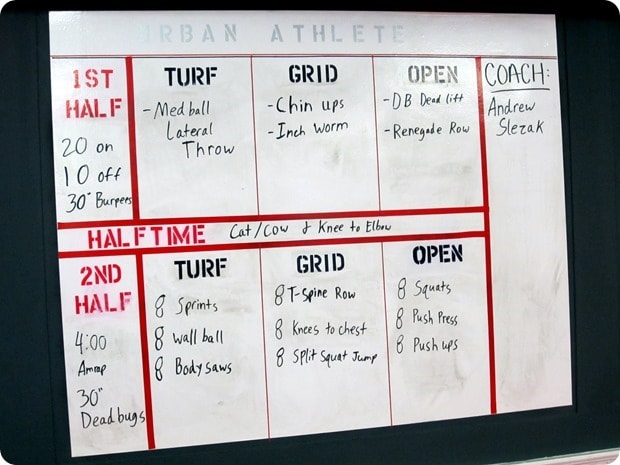 URBAN ATHLETE
1ST HALF
20 on
10 off
30" Burpees
TURF
-Med ball
Lateral
Throw
GRID
-Chin ups
-Inch Worm
OPEN
-DB Dead lift
-Renegade Row
COACH:
Andrew
Slezak
HALFTIME Cat/Cow & Knee to Elbow
2ND HALF
4:00
Amrap
30"
Deadbugs
TURF
8 Sprints
8 wall ball
8 Body saws
GRID
8 T-Spine Row
8 Knees to chest
8 Split Squat Jump
OPEN
8 Squats
8 Push Press
8 Push ups